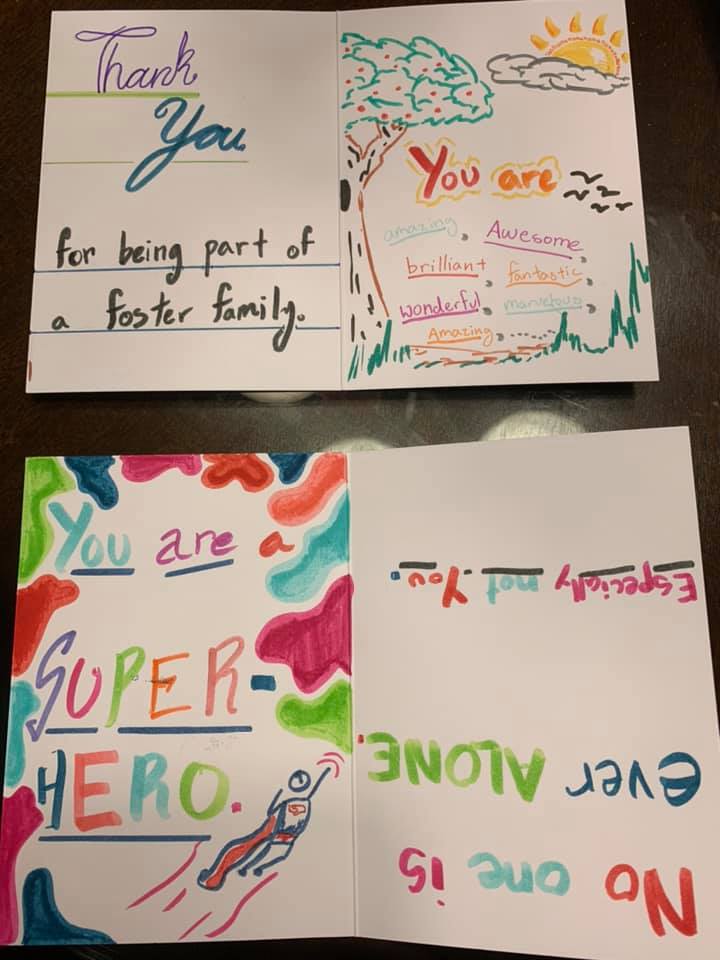 Thank
You
for being part of
a foster family.
You are
amazing, Awesome,
brilliant, fantastic,
wonderful, marvelous,
Amazing,
You are a
SUPER-
HERO.
No one is
ever ALONE.
Especially not You.